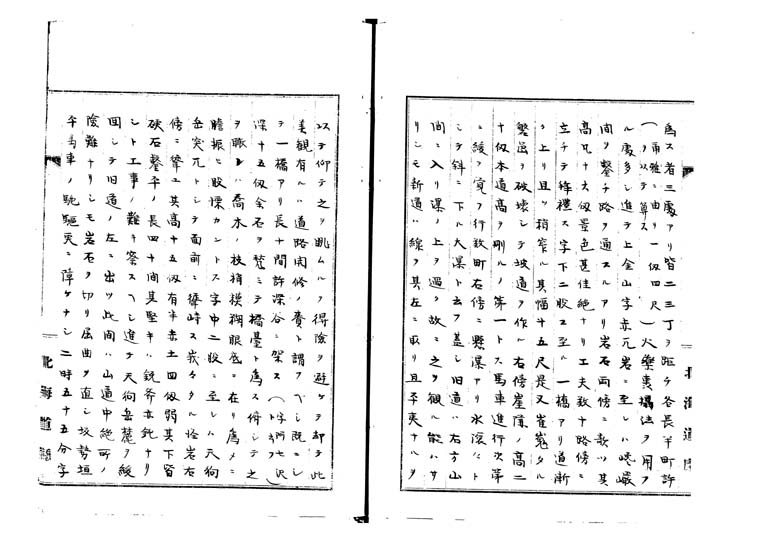 為ス者三處アリ皆二三丁ヲ距テ各長半町許
（爾雅ニ由リ一仭四尺
ノヲ以テ算ス）火藥裏爆法ヲ用フ
ル處多シ進テ上金山字赤兀岩ニ至レハ巉巖
間ヲ鑿チ路ヲ通スルアリ岩石両傍ニ欹ツ其
高凡十丈餘景色甚佳絶ナリ工夫数十路傍ニ
立チテ拜禮ス字下二股ニ至ル一橋アリ道漸
ク上リ且ツ稍窄ル其幅十五尺是又崔嵬タル
盤嵒ヲ破壊シテ坡道ヲ作ル右傍崖厲ノ高二
十仭本道高ヲ剛ルノ第一トス馬車進行次第
ニ緩ク寛ク行数町右傍ニ懸瀑アリ水滾々ト
シテ斜ニ下ル大瀑ト云フ蓋シ旧道ハ右方山
間ニ入リ瀑ノ上ヲ過ク故ニ之ヲ観ル能ハサ
リシモ新道ハ線ヲ其左ニ取リ且平夷ナルヲ
北海道廳
以テ仰テ之ヲ眺ムルヲ得險ヲ避ケテ却テ此
美観有ルハ道路開修ノ賚ト謂フヘシ既ニシ
テ一橋アリ長十間許深谷ニ架ス（字
）
深十五仭余石ヲ甃ミテ橋臺ト為ス俯シテ之
ヲ瞰レハ喬木ノ枝梢模糊眼底ニ在リ為メニ
膽振ヒ股慄カントス字中二股ニ至レハ天狗
岳突兀トシテ面前ニ挿峙ス峩々タル怪岩右
傍ニ聳エ其高十五仭有半赤土四仭弱其下皆
硤石鑿平ノ長四十間其堅キハ銳斧亦鈍ナリ
シト工事ノ難キ察スヘシ進テ天狗岳麓ヲ繞
回シテ旧道ノ左ニ出ツ此間ハ山道中絶所ノ
險難ナリシモ岩石ヲ切リ屈曲ヲ直シ坂勢垣
平馬車ノ馳駆更ニ障ケナシ二時五十五分字
北海道廳